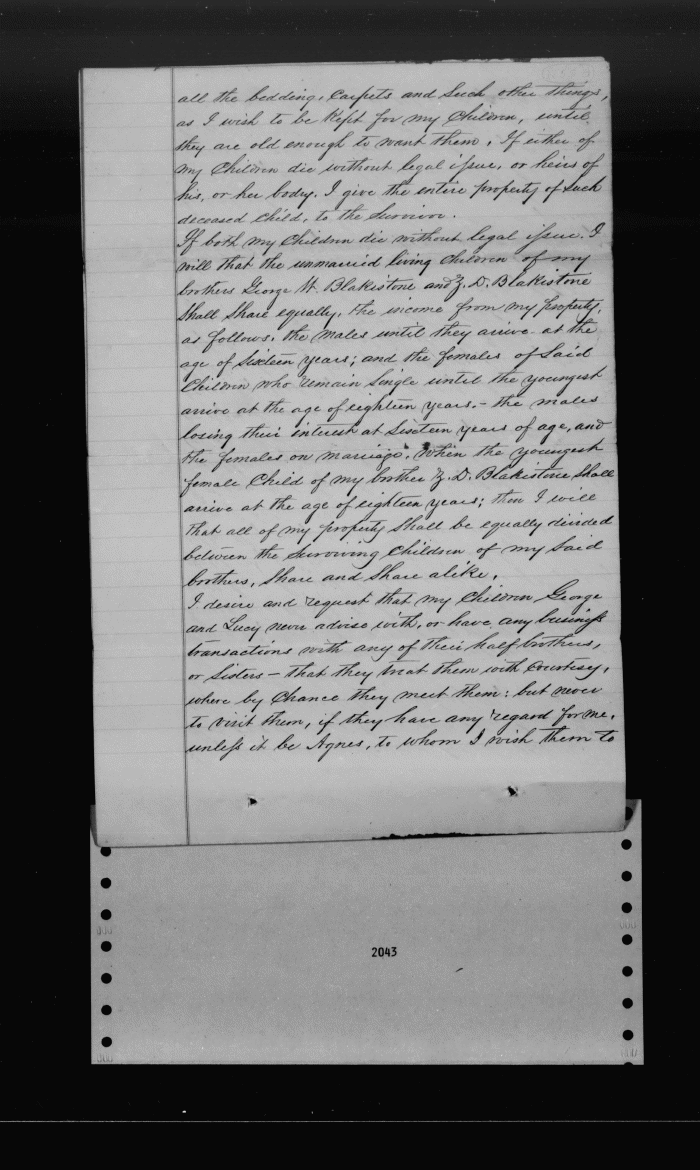 all the bedding, Carpets and Such other things,
as I wish to be Kept for my Children, until
they are old enough to want them. If either of
my Children die without legal issue, or heirs of
his, or her body. I give the entire property of Such
deceased Child, to the Survivor.
If both my Children die without legal issue. I
will that the unmarried living Children of my
brothers George W. Blakistone and Z. D. Blakistone
Shall Share equally, the income from my property,
as follows. the males until they arive at the
age of Sixteen years; and the females of Said
Children who remain Single until the youngest
arrive at the age of eighteen years. - the males
losing their interest at Sixteen years of age, and
the females on marriage. When the youngest
female Child of my brother Z. D. Blakistone Shall
arrive at the age of eighteen years; then I will
that all of my property Shall be equally divided
between the Surviving Children of my Said
brothers, Share and Share alike.
I desire and request that my Children George
and Lucy never advise with, or have any business
transactions with any of their half brothers,
or Sisters - that they treat them with Courtesy,
where by Chance they meet them: but never
to visit them, if they have any regard for me,
unless it be Agnes, to whom I wish them to
2043